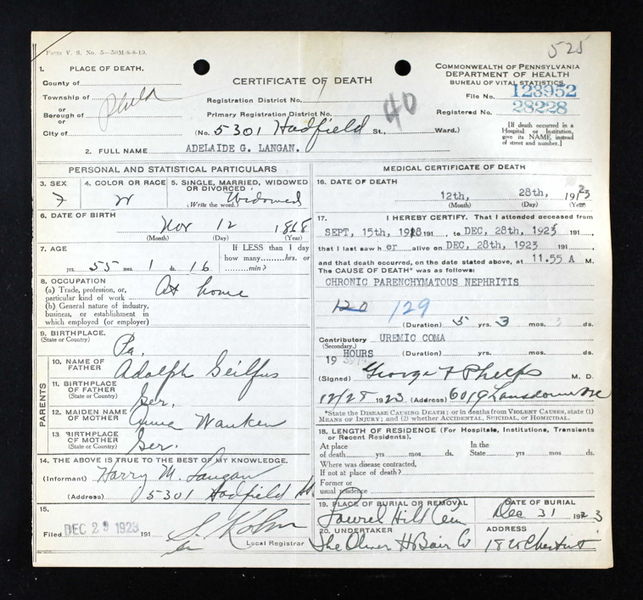 Form V. S. No. 5—50M-8-8-19.
525
1. PLACE OF DEATH.
County of
Township of
or
Borough of
or
City of
Phila
CERTIFICATE OF DEATH
Registration District No.
Primary Registration District No.
40
(No. 5301 Hadfield St., Ward.)
COMMONWEALTH OF PENNSYLVANIA
DEPARTMENT OF HEALTH
BUREAU OF VITAL STATISTICS
File No. 123952
Registered No. 28228
[If death occurred in a Hospital or Institution, give its NAME instead of street and number.]
2. FULL NAME ADELAIDE G. LANGAN.
PERSONAL AND STATISTICAL PARTICULARS
3. SEX
F
4. COLOR OR RACE
W
5. SINGLE, MARRIED, WIDOWED OR DIVORCED
(Write the word) Widowed
6. DATE OF BIRTH
Nov 12 1868
(Month) (Day) (Year)
7. AGE
55 yrs. 1 mos. 16 ds.
If LESS than 1 day how many hrs. or min.?
8. OCCUPATION
(a) Trade, profession, or, particular kind of work At home
(b) General nature of industry, business, or establishment in which employed (or employer)
9. BIRTHPLACE
(State or Country) Pa.
PARENTS
10. NAME OF FATHER Adolph Seilfus
11. BIRTHPLACE OF FATHER
(State or Country) Ger.
12. MAIDEN NAME OF MOTHER Anna Wanken
13. BIRTHPLACE OF MOTHER
(State or Country) Ger.
14. THE ABOVE IS TRUE TO THE BEST OF MY KNOWLEDGE.
(Informant) Harry M. Langan
(Address) 5301 Hadfield St
15.
Filed DEC 29 1923 191
S. Kohn
Local Registrar
MEDICAL CERTIFICATE OF DEATH
16. DATE OF DEATH
12th, 28th, 1923
(Month) (Day) (Year)
17. I HEREBY CERTIFY, That I attended deceased from
SEPT, 15th, 1918 191 to DEC, 28th, 1923 191
that I last saw h er alive on DEC, 28th, 1923 191
and that death occurred, on the date stated above, at 11.55 A M.
The CAUSE OF DEATH* was as follows:
CHRONIC PARENCHYMATOUS NEPHRITIS
120 129
(Duration) 5 yrs. 3 mos. ds.
Contributory UREMIC COMA
(Secondary)
HOURS
(Duration) yrs. mos. ds.
(Signed) George F Phelps M. D.
12/28 1923 (Address) 6019 Lansdowne Ave
*State the DISEASE CAUSING DEATH; or in deaths from VIOLENT CAUSES, state (1) MEANS OF INJURY; and (2) whether ACCIDENTAL, SUICIDAL, or HOMICIDAL.
18. LENGTH OF RESIDENCE (For Hospitals, Institutions, Transients or Recent Residents).
At place of death yrs. mos. ds. In the State yrs. mos. ds.
Where was disease contracted,
If not at place of death?
Former or
usual residence
19. PLACE OF BURIAL OR REMOVAL
Laurel Hill Cem
DATE OF BURIAL
Dec 31 1923
20. UNDERTAKER
The Oliver H Bair Co
ADDRESS
1820 Chestnut